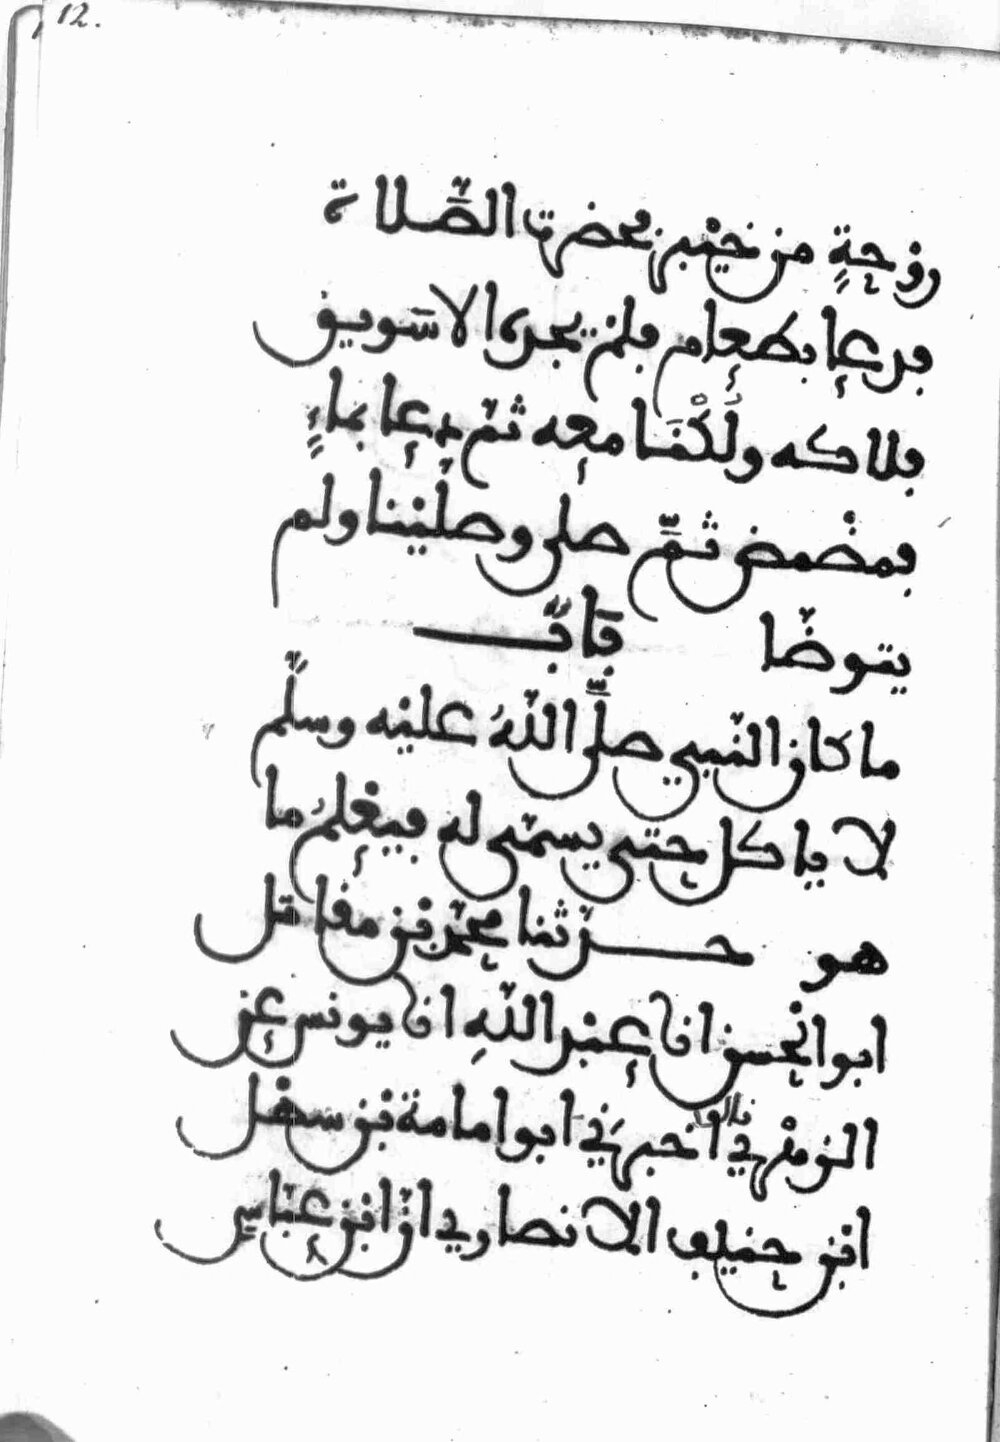 12.
روْحةٍ من خيْبر فحضرت الصّلاة
فدعا بطعام فلمْ يجده الا سويق
فلاكه ولُكْنَا معه ثمّ دعا بماءٍ
فمضْمض ثمّ صلى وصليْنا ولم
يتوضّا بابٌ
ما كان النّبي صلَّى اللّهُ عليْه وسلّم
لا ياكل حتى يسمّى له فيعْلمُ ما
هو حدّثنا محمّد بْن مقاتل
ابو الْحسن انا عبْد اللّهِ انا يونس عن
الزهْري قال اخبرَني ابو امامة بْن سهْل
ابْن حنيف الانصاري انّ ابْن عبّاسٍ